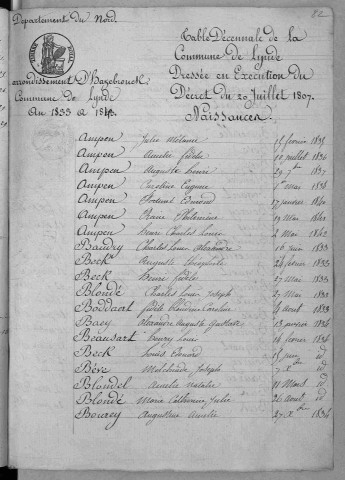 82
Département du Nord.
TIMBRE ROYAL
arrondissement d'Hazebrouck
Commune de Lynde
An 1833 a 1843.
Table Décennale de la
Commune de Lynde
Dressée en Exécution du
Décret du 20 Juillet 1807.
Naissances.
Ampen Julie Mélanie février 1835
Ampen Amélie juillet 1836
Ampen Auguste Henri 29 7bre 1837
Ampen Eugénie mai 1838
Ampen Edmond 17 janvier 1840
Ampen Philomène 19 Mai 1841
Ampen Henri Charles Louis 2 Mai 1842
Baudry Charles Louis Alexandre 10 juin 1833
Beck Auguste Théophile février 1833
Beck Henri fidèle 27 mai 1833
Blondé Charles Louis Joseph 27 Mai 1833
Boddaert fidèle Cornélien août 1833
Baey Alexandre Auguste Gustave 13 janvier 1834
Beausart Henry Louis 14 février 1834
Beck Louis Edouard 15 juin id
Bève Melchiade Joseph 7 Xbre id
Blondel Amélie Natalie 11 Mars id
Blondé Marie Catherine Julie 26 août id
Bourey Augustine Amélie 27 Xbre 1834